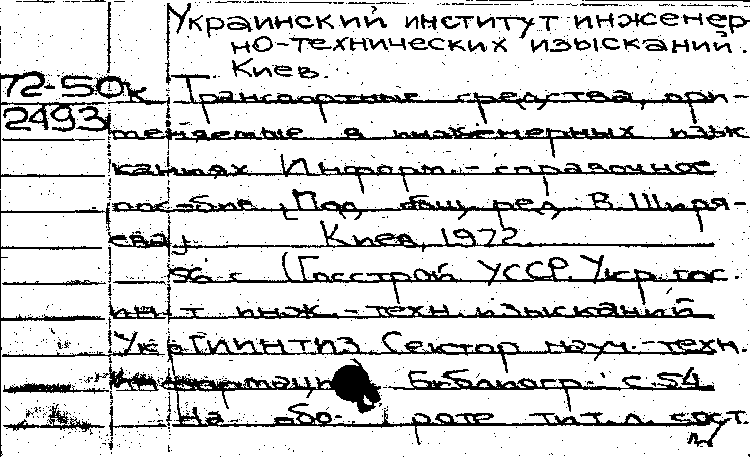 Украинский институт инженер
но-технических изысканий.
Киев.
72-50к Транспортные средства, при-
2493 меняемые в инженерных изыс
каниях Информ.-справочное
пособие [Под общ. ред. В. Ширя-
ева]. Киев, 1972.
56 с (Госстрой УССР. Укр. гос.
ин-т инж.-техн. изысканий
УкрГИИНТИЗ Сектор науч.-техн.
информации Библиогр.: с.54
На обо- роте тит. л. сост.